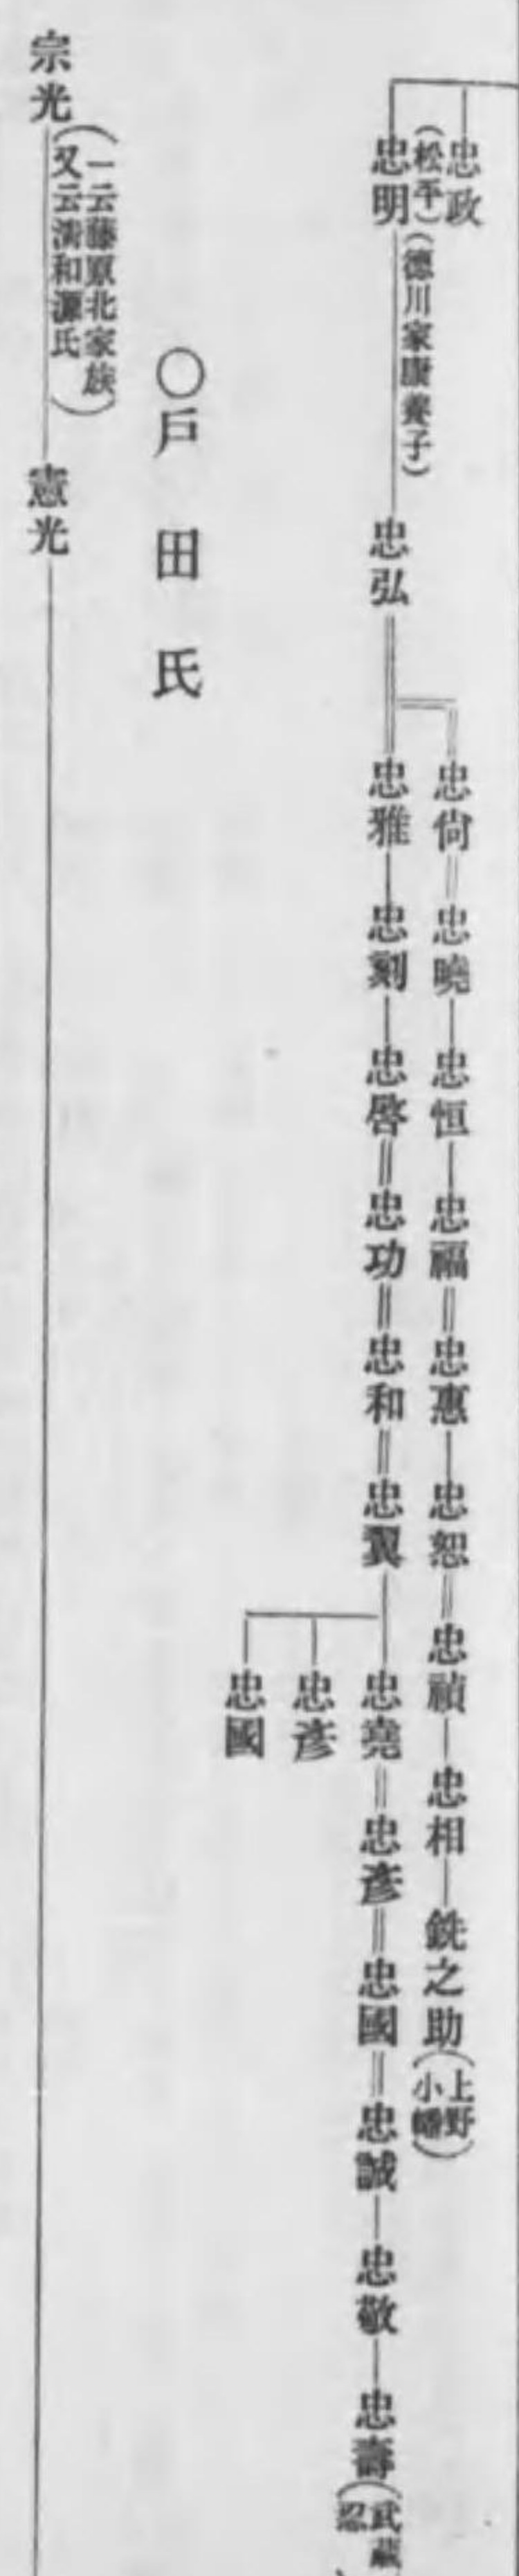 忠政
(松平)
忠明(德川家康養子)忠弘
忠尙 忠曉 忠恒 忠福 忠惠 忠恕 忠禎 忠相 銑之助(上野小幡)
忠雅 忠刻 忠啓 忠功 忠和 忠翼 忠堯 忠彥 忠國 忠誠 忠敬 忠壽(武藏忍
忠彥
忠國
〇戶田氏
宗光(一云藤原北家族
又云淸和源氏)憲光